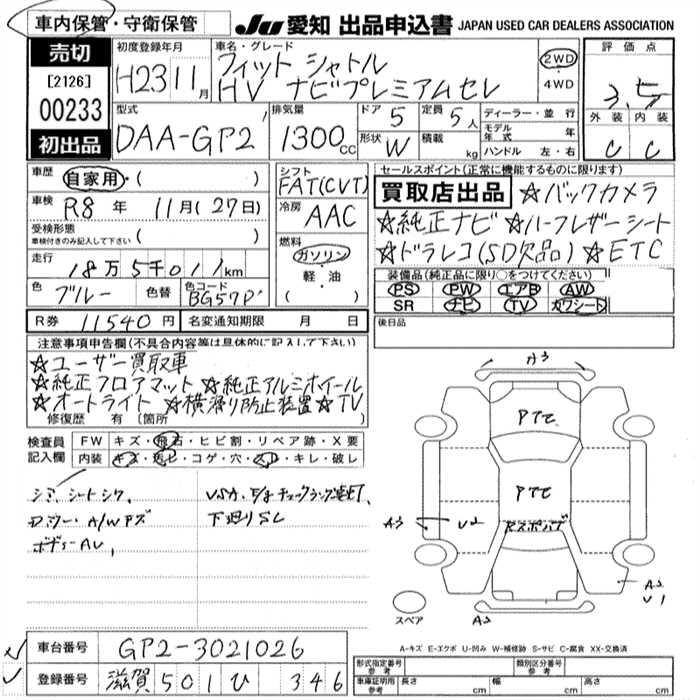 車内保管・守衛保管
JU 愛知 出品申込書 JAPAN USED CAR DEALERS ASSOCIATION
売切
[2126]
00233
初出品
初度登録年月
H23 11月
車名・グレード
フィット シャトル
HV ナビプレミアムセレ
2WD
・
4WD
評価点
3.5
外装 内装
C C
型式
DAA-GP2
排気量
1300cc
ドア 5
定員 5人
形状 W
積載 kg
ディーラー・並行
モデル年式 年
ハンドル 左・右
車歴
自家用・( )
車検 R8年 11月(27日)
受検形態
車検付きのみ記入して下さい ( )
走行
18万5千011km
色 ブルー
色替
色コード BG57P
シフト
FAT(CVT)
冷房
AAC
燃料
ガソリン
・
軽・油
( )
R券 11540円
名変通知期限 月 日
セールスポイント(正常に機能するものに限ります)
買取店出品 ☆バックカメラ
☆純正ナビ ☆ハーフレザーシート
☆ドラレコ(SD欠品) ☆ETC
装備品(純正品に限り○をつけてください)
PS PW エアB AW
SR ナビ TV カワシート
後日品
注意事項申告欄(不具合内容等は具体的に記入して下さい)
☆ユーザー買取車
☆純正フロアマット ☆純正アルミホイール
☆オートライト ☆横滑り防止装置 ☆TV
修復歴 有 〔箇所 〕
検査員記入欄
FW キズ・飛石・ヒビ割・リペア跡・X要
内装 キズ・汚レ・コゲ・穴・スレ・キレ・破レ
ボデーAU,
下廻りSC
A3
PTち
PTち
A3
U2
A2
U1
A2
スペア
A-キズ E-エクボ U-凹み W-補修跡 S-サビ C-腐食 XX-交換済
車台番号 GP2-3021026
登録番号 滋賀 501 ひ 346
形式指定番号 参考
類別区分番号 参考
車庫証明用 参考
長さ cm
幅 cm
高さ cm